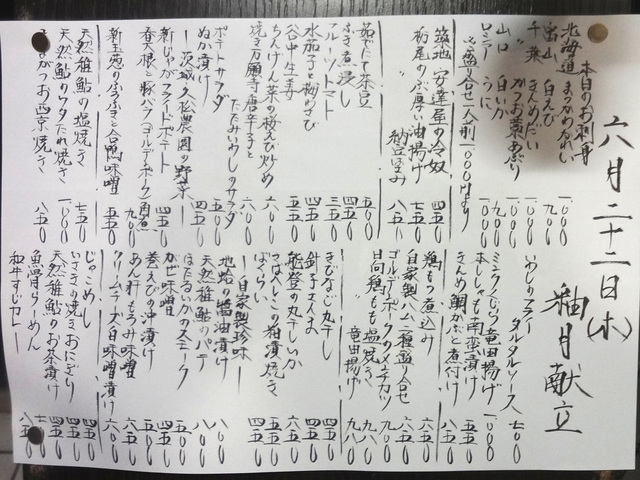 六月二十二日(木)
釉月献立
本日のお刺身
北海道 まつかわかれい 一、〇〇〇
富山 白えび 九〇〇
千葉 きんめだい 一、〇〇〇
かつお藁あぶり 九〇〇
山口 白いか 一、〇〇〇
ロシア うに 一、〇〇〇
盛り合せ一人前一、〇〇〇円より
築地 万達屋の冷奴 四五〇
栃尾のぶ厚い油揚げ 七五〇
〃 納豆包み 八五〇
茹でたて茶豆 五〇〇
ふき煮浸し 四五〇
フルーツトマト 三五〇
水茄子と梅わさび 四五〇
谷中生姜 五五〇
ちんげん菜の桜えび炒め 六〇〇
焼き万願寺唐辛子と
たたみいわしのサラダ 六〇〇
ポテトサラダ 五〇〇
ぬか漬け 四五〇
―茨城久松農園の野菜―
新じゃがフライドポテト 四五〇
春大根と豚バラ(ゴールデンポーク)角煮 九〇〇
新玉葱のふうふきと合鴨味噌 五五〇
天然稚鮎の塩焼き 七五〇
天然鮎のワタたれ焼き 一、〇〇〇
まながつお西京焼き 八五〇
いわしのフライ タルタルソース 七〇〇
ミンククじら竜田揚げ 一、〇〇〇
本ししゃも南蛮漬け 九〇〇
きんめ鯛かぶと煮付け
鶏もつ煮込み 六五〇
自家製ハム二種盛り合せ 六五〇
ゴールデンポークのメンチカツ 九〇〇
日向鶏もも塩焼き 九八〇
〃 竜田揚げ 九八〇
きびなご丸干し 四五〇
針子さんま 四五〇
能登の丸干しいか 六五〇
つぼだいこの粕漬焼き
ばくらい 四五〇
―自家製珍味―
地蛤の醤油漬け 八〇〇
天然稚鮎のパテ 八〇〇
ほたるいかのスモーク
かぜ味噌 四五〇
巻えびの沖漬け 五五〇
あん肝もろみ味噌 六五〇
クリームチーズ白味噌漬け 六〇〇
じゃこめし 四五〇
いさきの焼きおにぎり 四五〇
天然稚鮎のお茶漬け 五五〇
魚骨らーめん
和牛すじカレー 八五〇